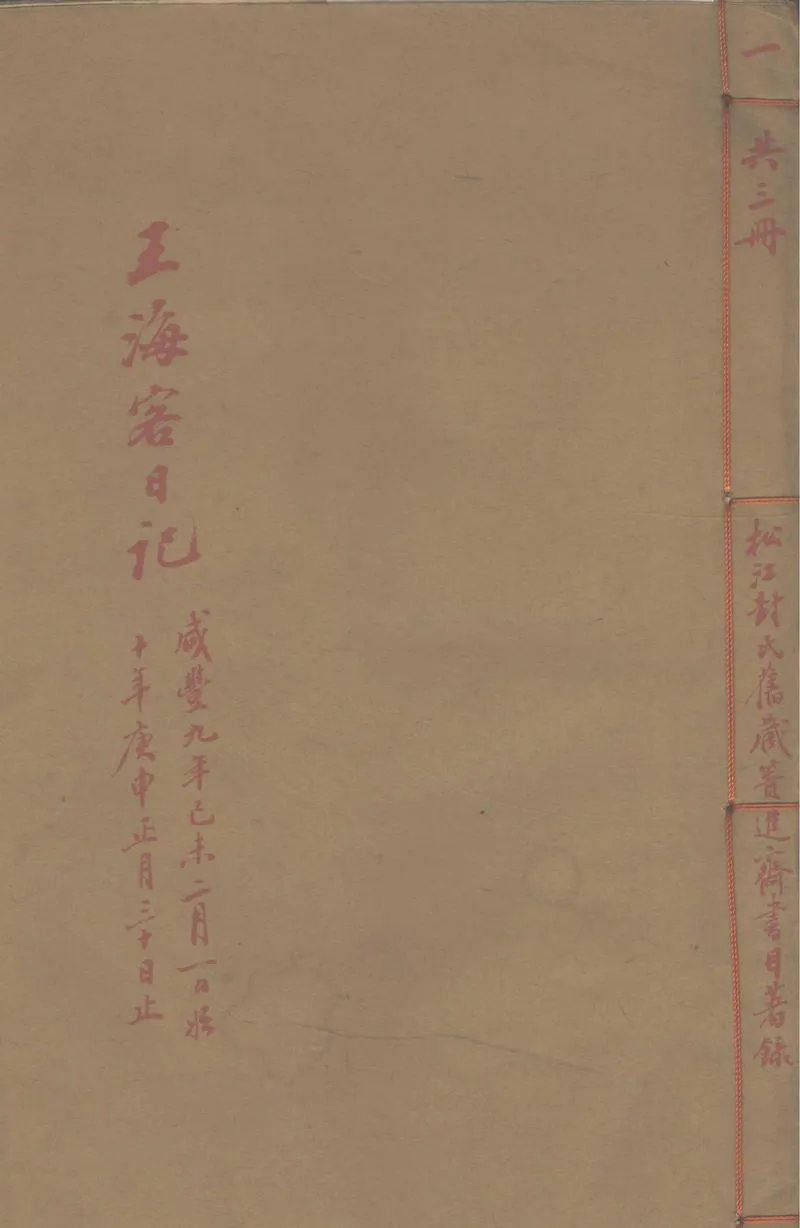 一
共三冊
松江封氏舊藏簣進齋書目著錄
王海客日记
咸豐九年己未二月一日始
十年庚申正月三十日止